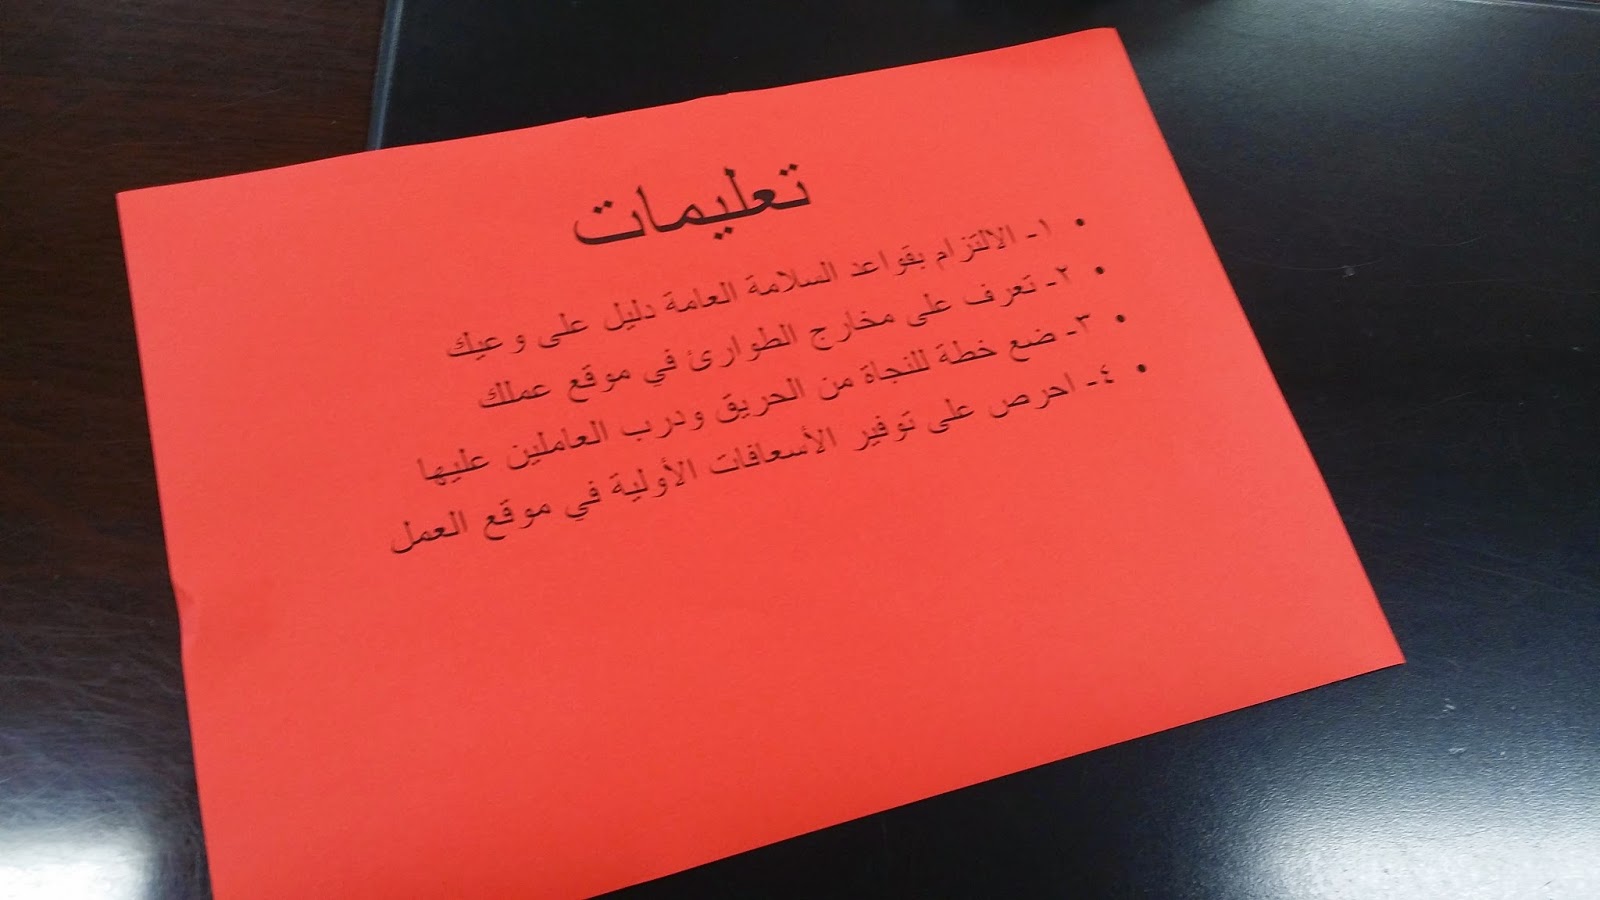 تعليمات
• ١- الالتزام بقواعد السلامة العامة دليل على وعيك
• ٢- تعرف على مخارج الطوارئ في موقع عملك
• ٣- ضع خطة للنجاة من الحريق ودرب العاملين عليها
• ٤- احرص على توفير الأسعافات الأولية في موقع العمل